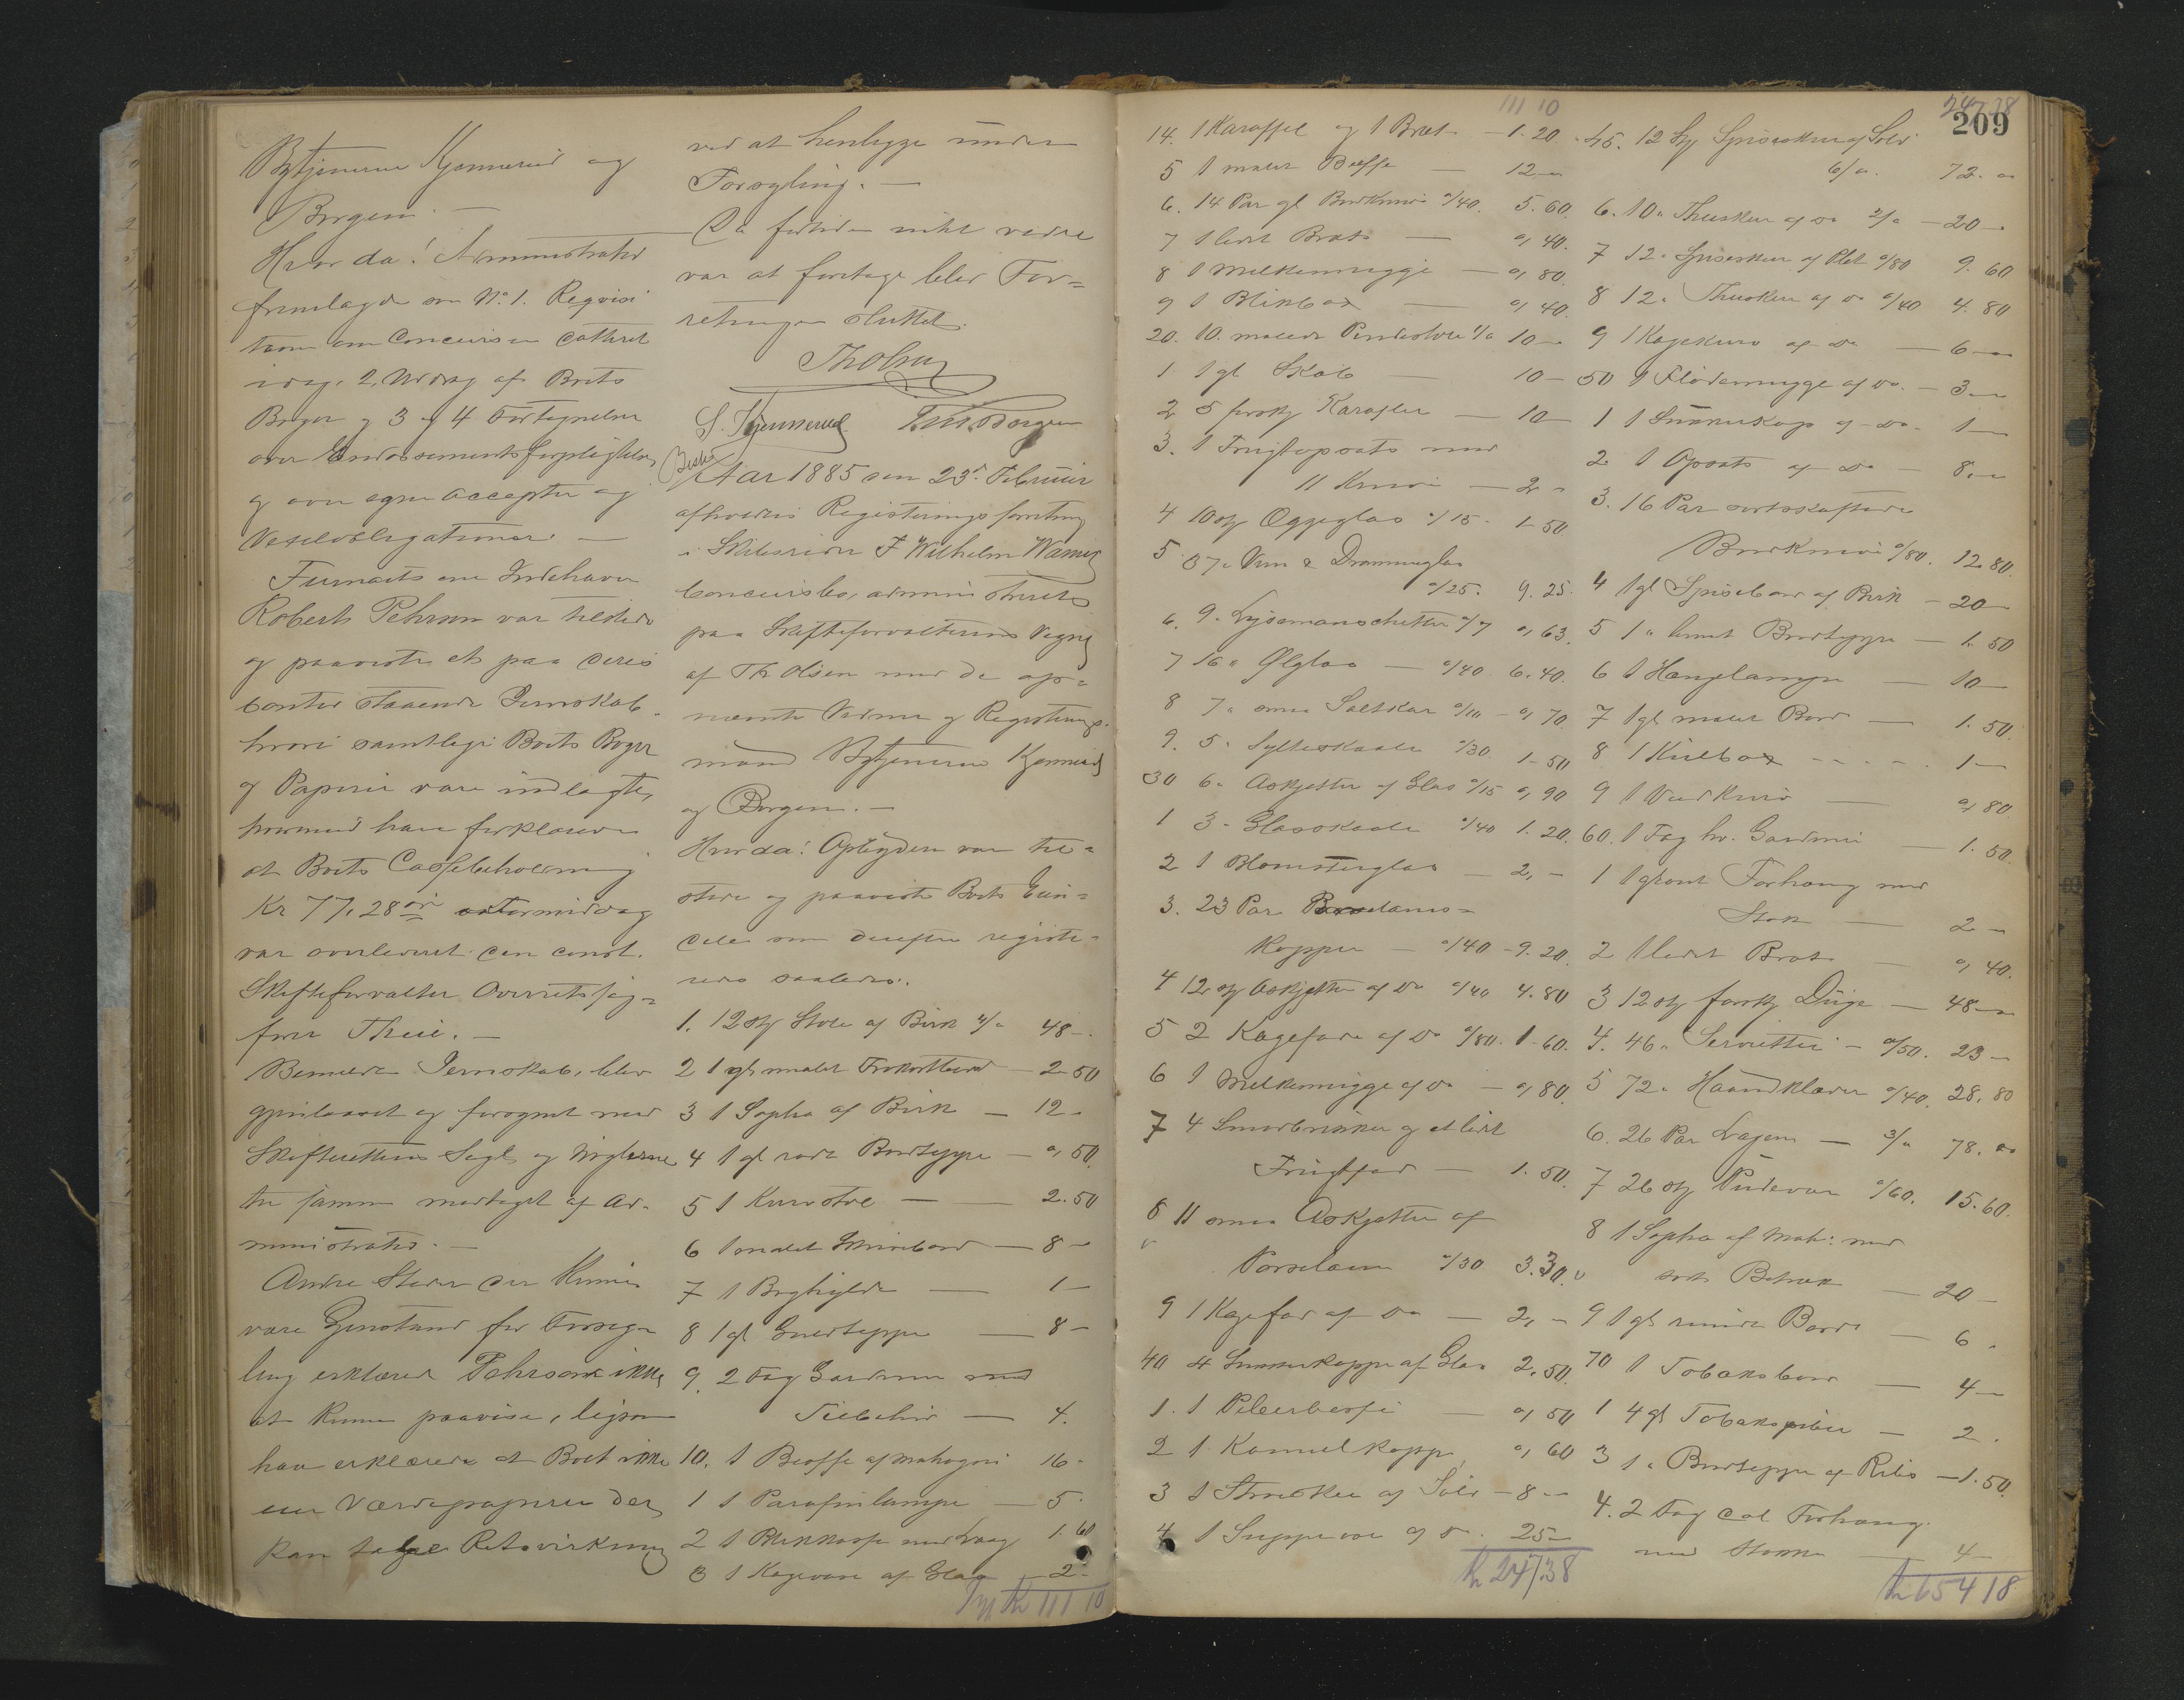 Bytjenerne Kjennerud og
Borgen. —
Hvor da! Administrator
fremlagde som No 1. Reqvisi
tion om Concursen dateret
idag. 2, Uddrag af Boets
Bøger og 3 og 4 Fortegnelse
over Endossementsforpligtelser
og over egne Accepter og
Vexelobligationer. —
Firmaets ene Indehaver
Robert Pehrson var tilstede
og paaviste et paa deres
Contor staaende Jernskab,
hvori samtlige Boets Bøger
og Papirer vare indlagte,
hvornæst han forklarede
at Boets Cassebeholdning
Kr 77,28 øre Formiddag
var overleveret den const.
Skifteforvalter Overretssag=
fører Thue. —
Bemeldte Jernskab, blev
gjenlaaset og forsynet med
Skifterettens Segl og Nøglerne
til samme modtaget af Ad=
ministrator. —
Andre Steder der kunne
være Gjenstand for Forseg=
ling erklærede Pehrson ikke
at kunne paavise, ligesom
han erklærede at Boet ikke
eier Værdipapirer der
kan tabe Retsvirkning
ved at henligge under
Forsegling. —
Da forøvrigt intet videre
var at foretage blev For=
retningen sluttet.
ThOlsen
S. Kjennerud Borgen
Aar 1885 den 23de Februar
afholdtes Registreringsforretning
i Skibsreder F Wilhelm
Concursbo, administreret
paa Skifteforvalterens Vegne
af Th Olsen med de op=
nævnte Vidner og Registrerings=
mænd Bytjenerne Kjennerud
og Borgen. —
Hvor da! Opbyderen var til=
stede og paaviste Boets Eien=
dele som derefter registre=
redes saaledes:
1. 12 stk Stole af Birk 4/" 48 —
2 1 gl. malet Frokostbord — 2.50
3 1 Sopha af Birk — 12 -
4 1 gl rødt Bordteppe — „ 50.
5 1 Kurvstol — 2.50
6 1 malet Skrivebord — 8 —
7 1 Boghylde — 1 —
8 1 gl Gulvteppe — 8 —
9. 2 Fag Gardiner med
Tilbehør — 4.
10. 1 Buffe af Mahogni 16 -
1 1 Parafinlampe — 5 -
2 1 Blikkasse med Laag 1.60
3 1 Kagevase af Glas — 2 -
Kr 111 10
111 10
14. 1 Karaffel og 1 Bret — 1.20.
5 1 malet Buffe — 12 —
6. 14 Par gl Bordknive "/40. 5.60.
7 1 lidet Bræt — „ 40.
8 1 Melkemugge — „ 80.
9 1 Blikbox — „ 40.
20. 10. malede Pindestole 1/" 10 —
1 1 gl Skab — 10 —
2 5 forskj Karafler — 10 —
3. 1 Frugtopsats med
11 Knive — 2 -
4 10 stk Æggeglas "/15 - 1.50
5 37 " Vin & Dramme glas
"/25. 9.25.
6. 9 " Lysemanschetter "/7 „ 63.
7 16 " Ølglas — "/40 6.40.
8 7 " smaa Saltkar "/10 - „ 70.
9. 5 " Sylteskaale "/30 1.50
30 6 " Askjetter af Glas "/15 „ 90
1 3 - Glasskaale "/40 1.20.
2 1 Blomsterglas — 2, -
3. 23 Par Porselains=
Kopper — "/40 - 9.20.
4 12 stk Askjetter af Do "/40 4.80
5 2 Kagefade af Do "/80. 1.60.
6 1 Melkemugge af Do — „ 80.
7 4 Smørbrikker og et lidet
Frugtfad — 1.50.
8 11 smaa Askjetter af
Porselæn "/30 3.30.
9 1 Kagefad af Do — 2, -
40 4 Sukkerkopper af Glas 2.50.
1. 1 Peberbøsse — „ 50
2 1 Kamelkoppe „ 60
3 1 Strøske af Sølv — 8 —
4 1 Suppeøse af Do. 25 —
Kr 247.38
247.38
209
45. 12 stk Spiseskeer af Sølv
6/". 72. „
6. 10 " Theskeer af Do 2/" — 20 —
7 12 " Spiseskeer af Plet "/80 9.60
8 12 " Theskeer af Do "/40 4.80
9 1 Kagekurv af Do — 6 —
50 1 Flødemugge af Do. — 3 —
1 1 Sukkerkop af Do - 1 —
2 1 Opsats af Do — 8. —
3. 16 Par sortskaftede
Bordknive "/80. 12.80.
4 1 gl Spisebord af Birk — 20 —
5 1 " Bordteppe — 1.50
6 1 Hængelampe — 10 —
7 1 gl malet Bord — 1.50.
8 1 Kulbox - - - - 1 —
9 1 Vedkurv — „ 80.
60. 1 Fag hv. Gardiner — 1.50.
1 1 grønt Forhæng med
Stok — 2 —
2 1 lidet Bræt — „ 40.
3 12 stk forskj Duge — 48 —
4. 46 " Servietter — "/50. 23 —
5 72 " Haandklæder "/40. 28.80
6. 26 Par Lagen — 3/" 78. „
7 26 stk Pudevar "/60. 15.60.
8 1 Sopha af Mah: med
sort Betræk — 20 -
9 1 gl rundt Bord — 6.
70 1 Tobaksbord — 4 —
1 4 gl Tobakspiber — 2.
3 1 " Bordteppe af Ribs — 1.50.
4. 2 Fag Forhæng
med Stokke — 4 —
Kr 654 18